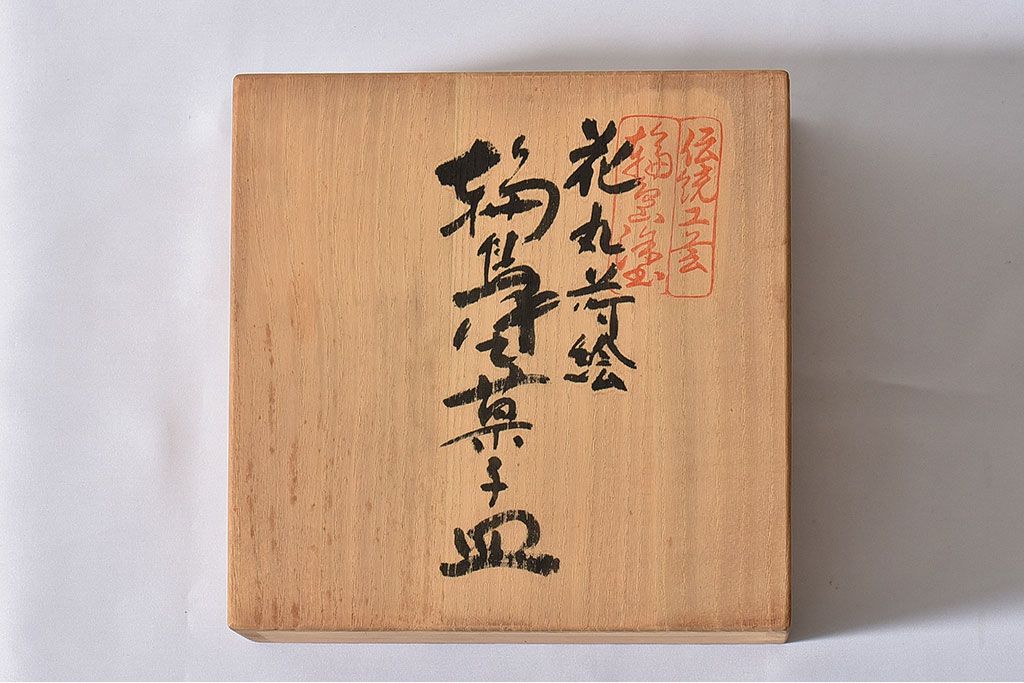 伝統工芸
輪島塗
花丸蒔絵
輪島塗菓子皿